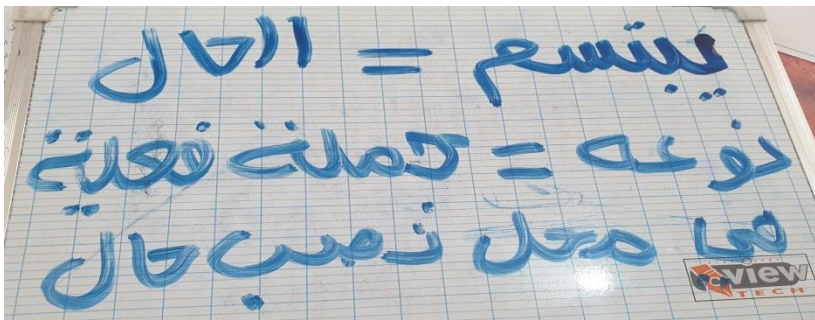 يبتسم = الحال
نوعه = جملة فعلية
في محل نصب حال
view
TECH